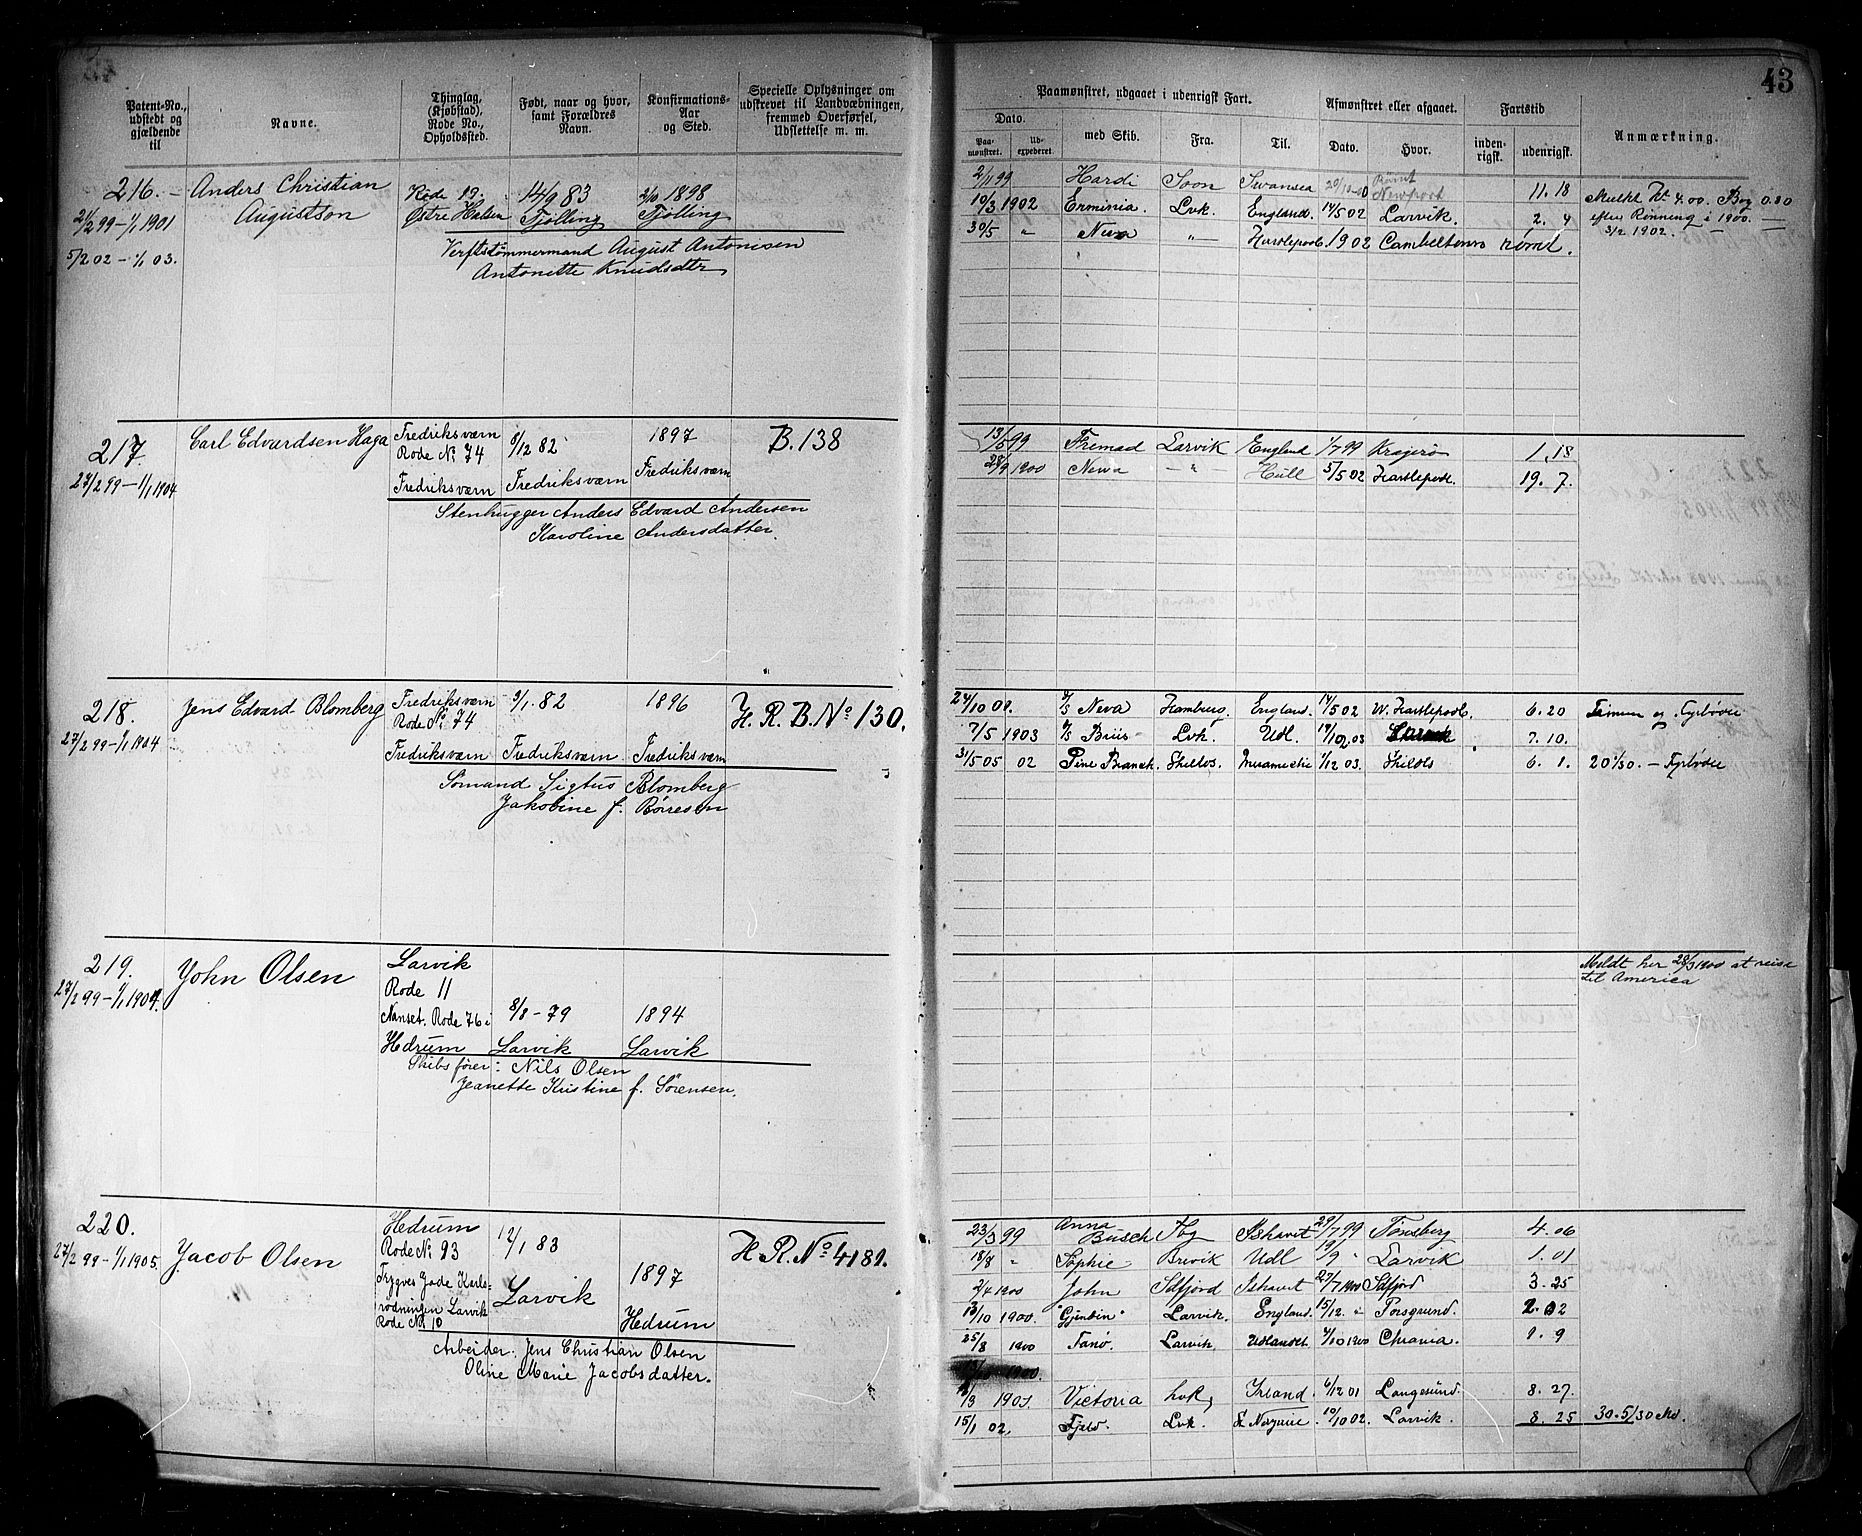 43
Patent-No., udstedt og gjældende til
Navne.
Thinglag, (Kjøbstad), Rode No., Opholdssted.
Født, naar og hvor, samt Forældres Navn.
Konfirmations-Aar og Sted.
Specielle Oplysninger om udskrevet til Landværnningen, fremmed Overførsel, Udslettelse m. m.
Paamønstret, udgaaet i udenrigsk Fart.
Afmønstret eller afgaaet.
Fartstid
Anmærkning.
Dato.
med Skib.
Fra.
Til.
Dato.
Hvor.
inden-rigsk.
udenrigsk.
Paa-mønstret.
Ud-expederet.
216. Anders Christian Augustson
21/2 99 – 1/1 1901
5/2 02 – 1/1 03.
Rode 19. Østre Halsen
14/9 83 Tjølling
2/10 1898 Tjølling
Verftstømmermand August Antonisen
Antonette Knudsdtr
2/11 99 Hardi Soon Swansea 20/10-00 Rømt Newport 11. 18
19/3 1902 Erminia. Lvk. England. 14/5 02 Larvik. 2. 4
30/5 " Neva " Hartlepool. 1902 Cambeltown rømt.
Mulkt Kr 4.00. Bog 0.80
efter Rømning i 1900.
3/2 1902.
217. Carl Edvardsen Haga
27/2 99 – 1/1 1904
Fredriksværn Rode No. 74
Fredriksværn
8/12 82
Fredriksværn
1897
Fredriksværn
B. 138
Stenhugger Anders Edvard Andersen
Karoline Andersdatter.
13/5 99 Fremad Larvik England 1/7 99 Kragerø 1. 18
28/9 1900 Newa " Hull 5/5 02 Hartlepool. 19. 7.
218. Jens Edvard Blomberg
27/2 99 – 1/1 1904
Fredriksværn Rode No. 74
Fredriksværn
9/1. 82
Fredriksværn
1896
Fredriksværn
H. R. B. No 130.
Sømand Sigtus Blomberg
Jakobine f. Børresen
Neva Hamburg. England. 14/5 02 W. Hartlepool. 6. 20
7/5 1903 Lvk. Udl. Larvik 7. 10.
31/5 05 02 Pine Branch. Shellos. 1/12 03. Shilds 6. 1. Fyrbøder
219. John Olsen
27/2 99 – 1/1 1904.
Larvik
Rode 11
Nanset. Rode 76 i
Hedrum
8/8 – 79
Larvik
1894
Larvik
Skibsfører: Nils Olsen
Jeanette Kristine f. Sørensen.
Meldt her 28/3 1900 at reise
til America
220. Jacob Olsen
27/2 99 – 1/1 1905.
Hedrum
Rode No. 93
Trygves Gade Karls-
Larvik
Rode No. 10
12/1 83
Larvik
1897
Hedrum
H. R. No 4181.
Arbeider. Jens Christian Olsen
Oline Marie Jacobsdatter.
23/3 99 Anna Busch Tbg Ishavet 29/7 99 Tønsberg 4. 06
18/8 " Sophie Brevik Udl 19/9 " Larvik 1. 01
2/4 1900 John Sdfjord Ishavet 27/7 1900 Sdfjord 3. 25
13/10 1900. "Gjendin" Larvik. England. 15/12. " Porsgrund. 2. 02
25/8 1900 Fanø. Larvik. Udlandet 4/10 1900 Chrania. 1. 9
1900.
1901 Victoria Lvk, Irland. 6/12 01 Langesund. 8. 27.
15/1 02. Fjeld. Lvk. 10/10 02. Larvik. 8. 25 30. 5/30 Md.